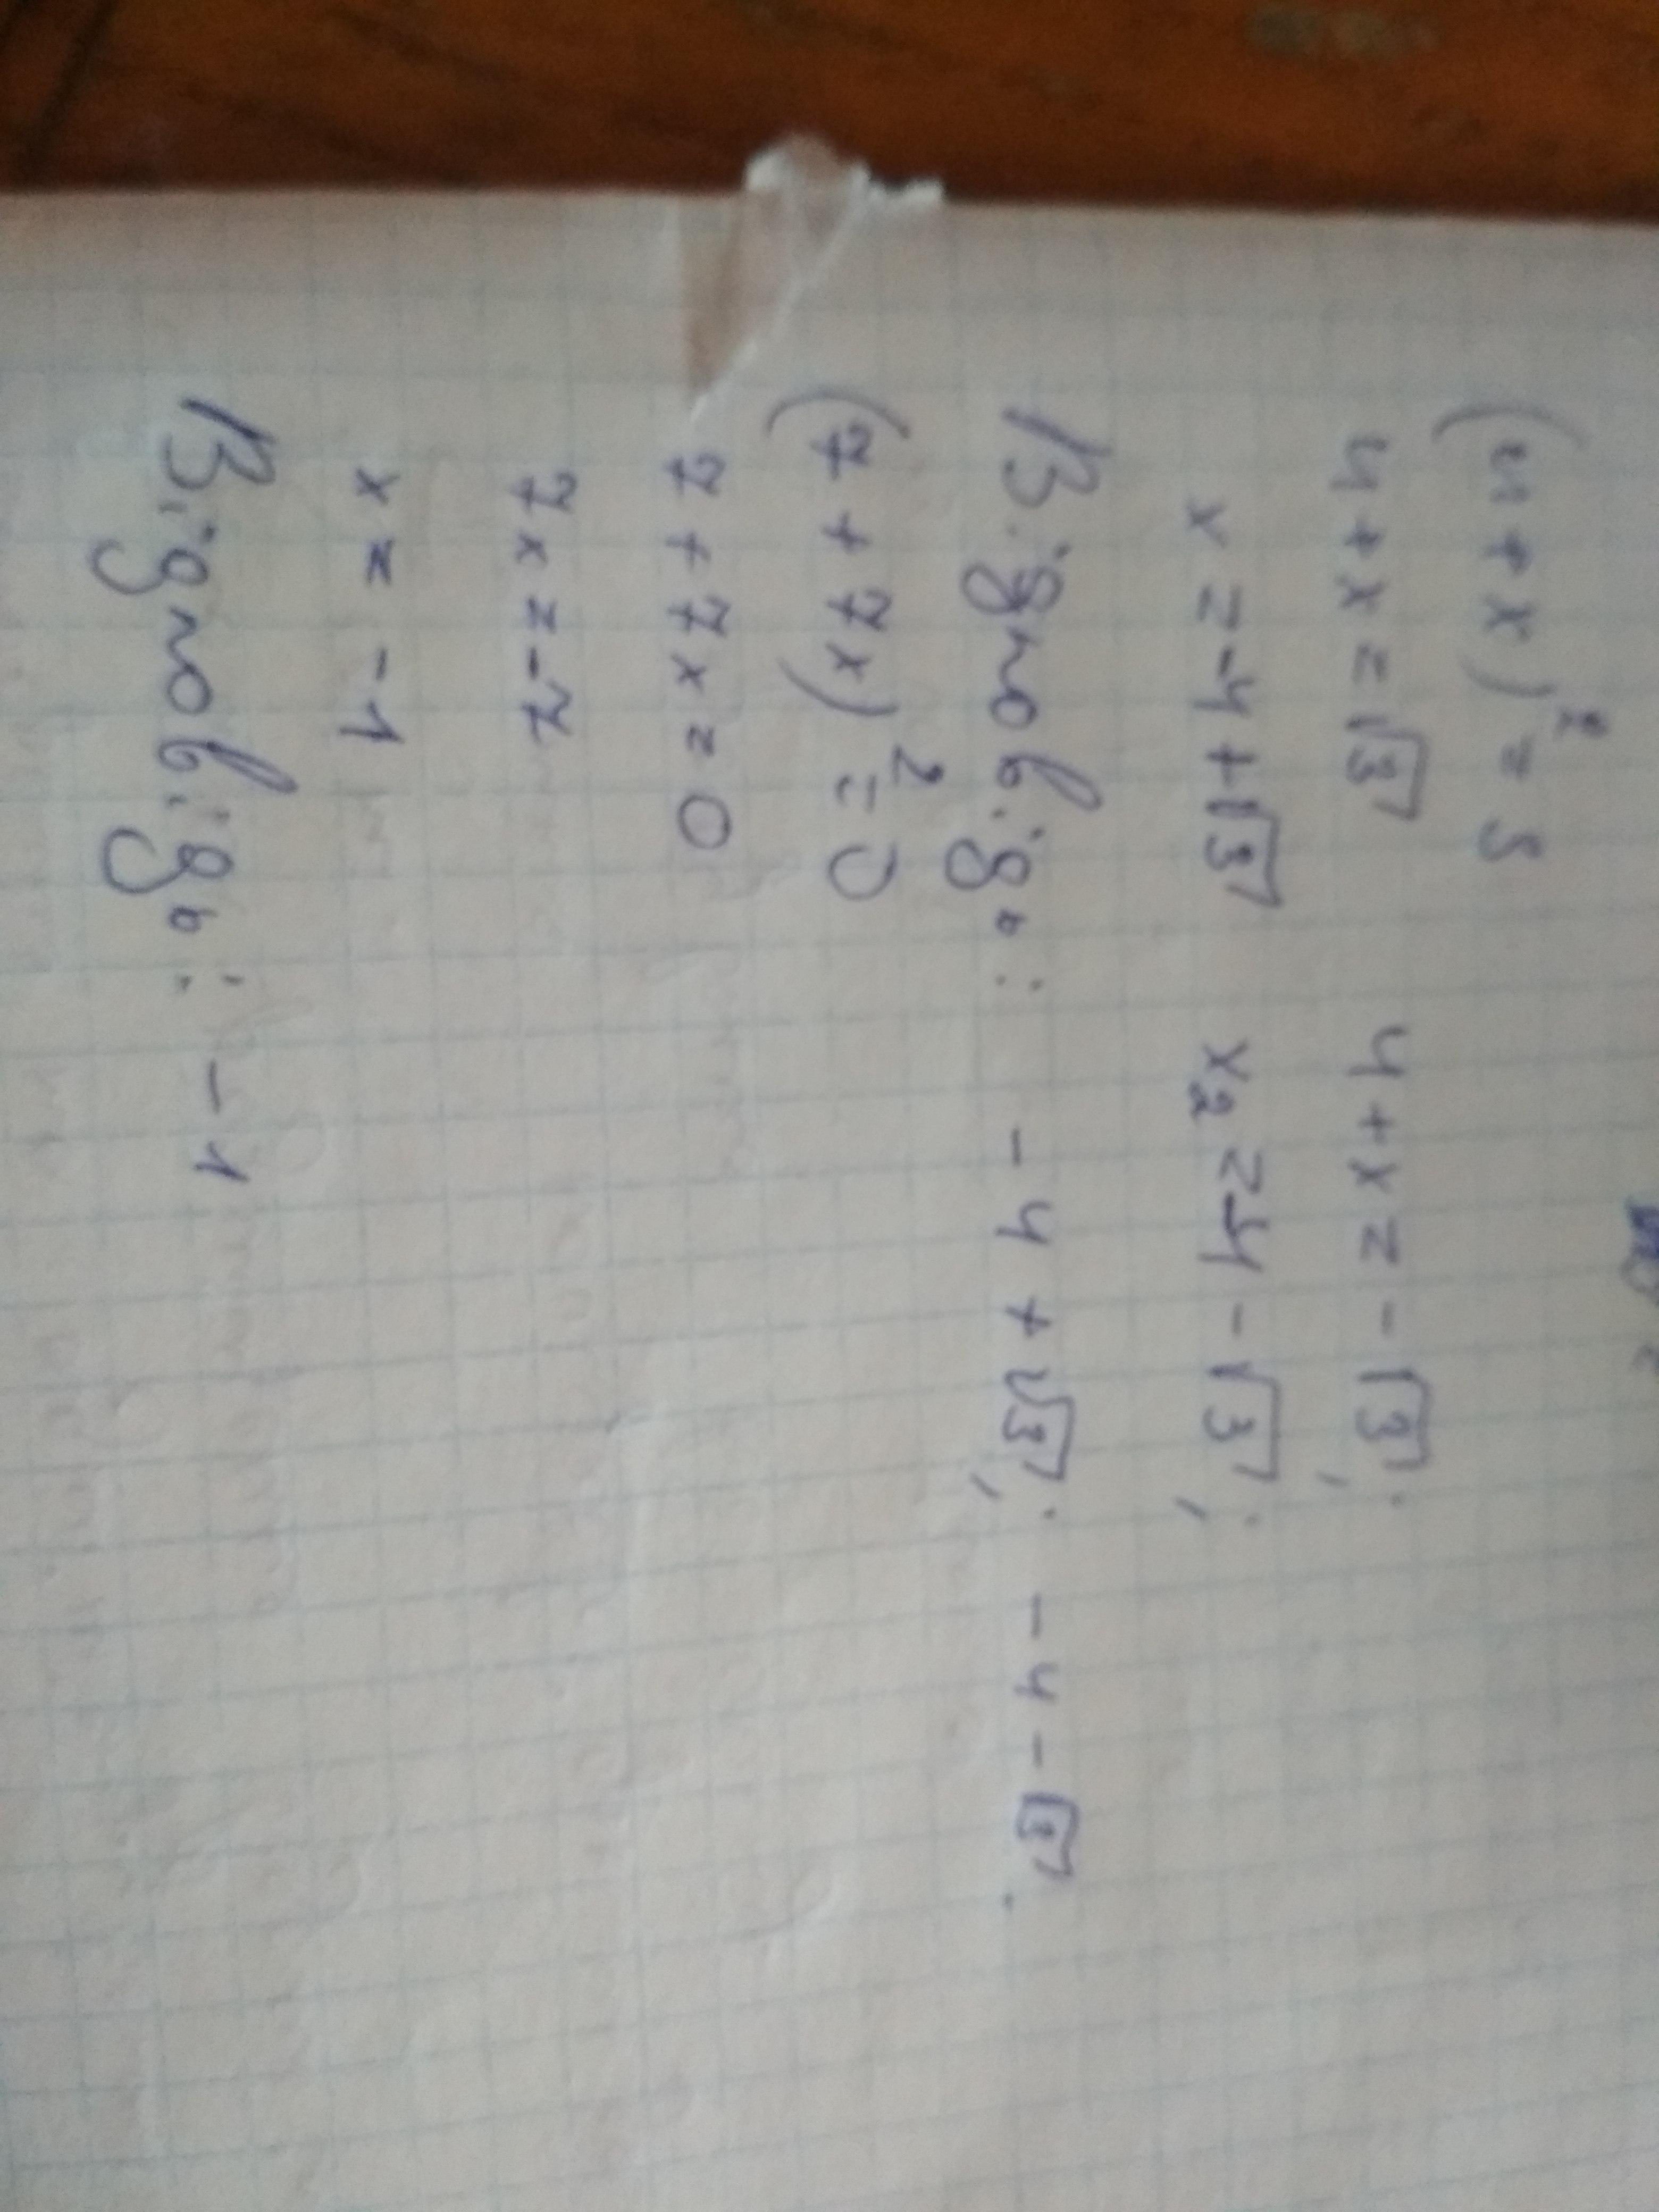 (4+x)² = 3
4+x=√3 4+x=-√3;
x=-4+√3 x₂=-4-√3;
Відповідь: -4+√3; -4-√3.
(7+7x)²=0
7+7x=0
7x=-7
x=-1
Відповідь: -1